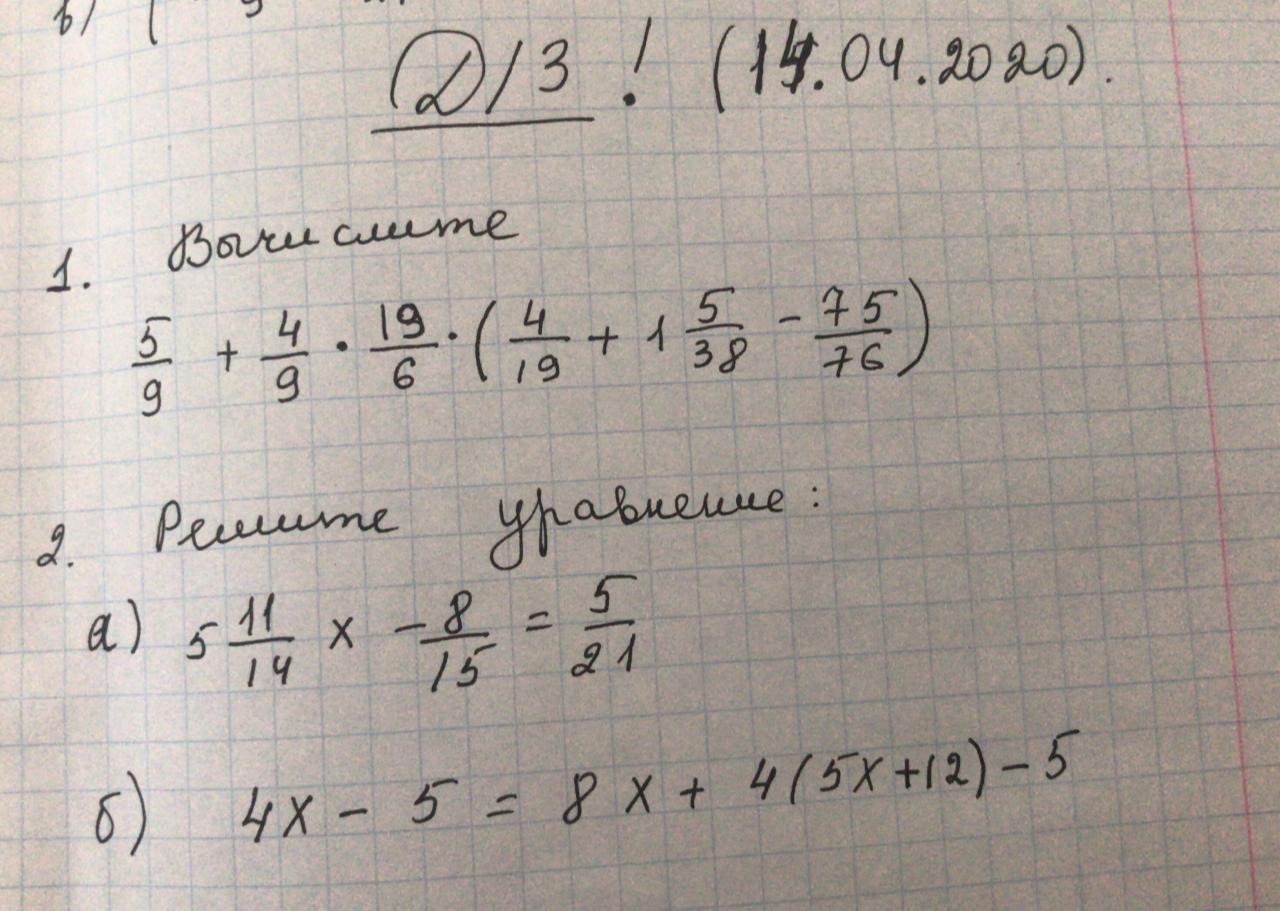 в) (
Д/З! (14.04.2020).
1. Вычислите
5/9 + 4/9 · 19/6 · (4/19 + 1 5/38 - 75/76)
2. Решите уравнение:
а) 5 11/14 x - 8/15 = 5/21
б) 4x - 5 = 8x + 4(5x+12) - 5